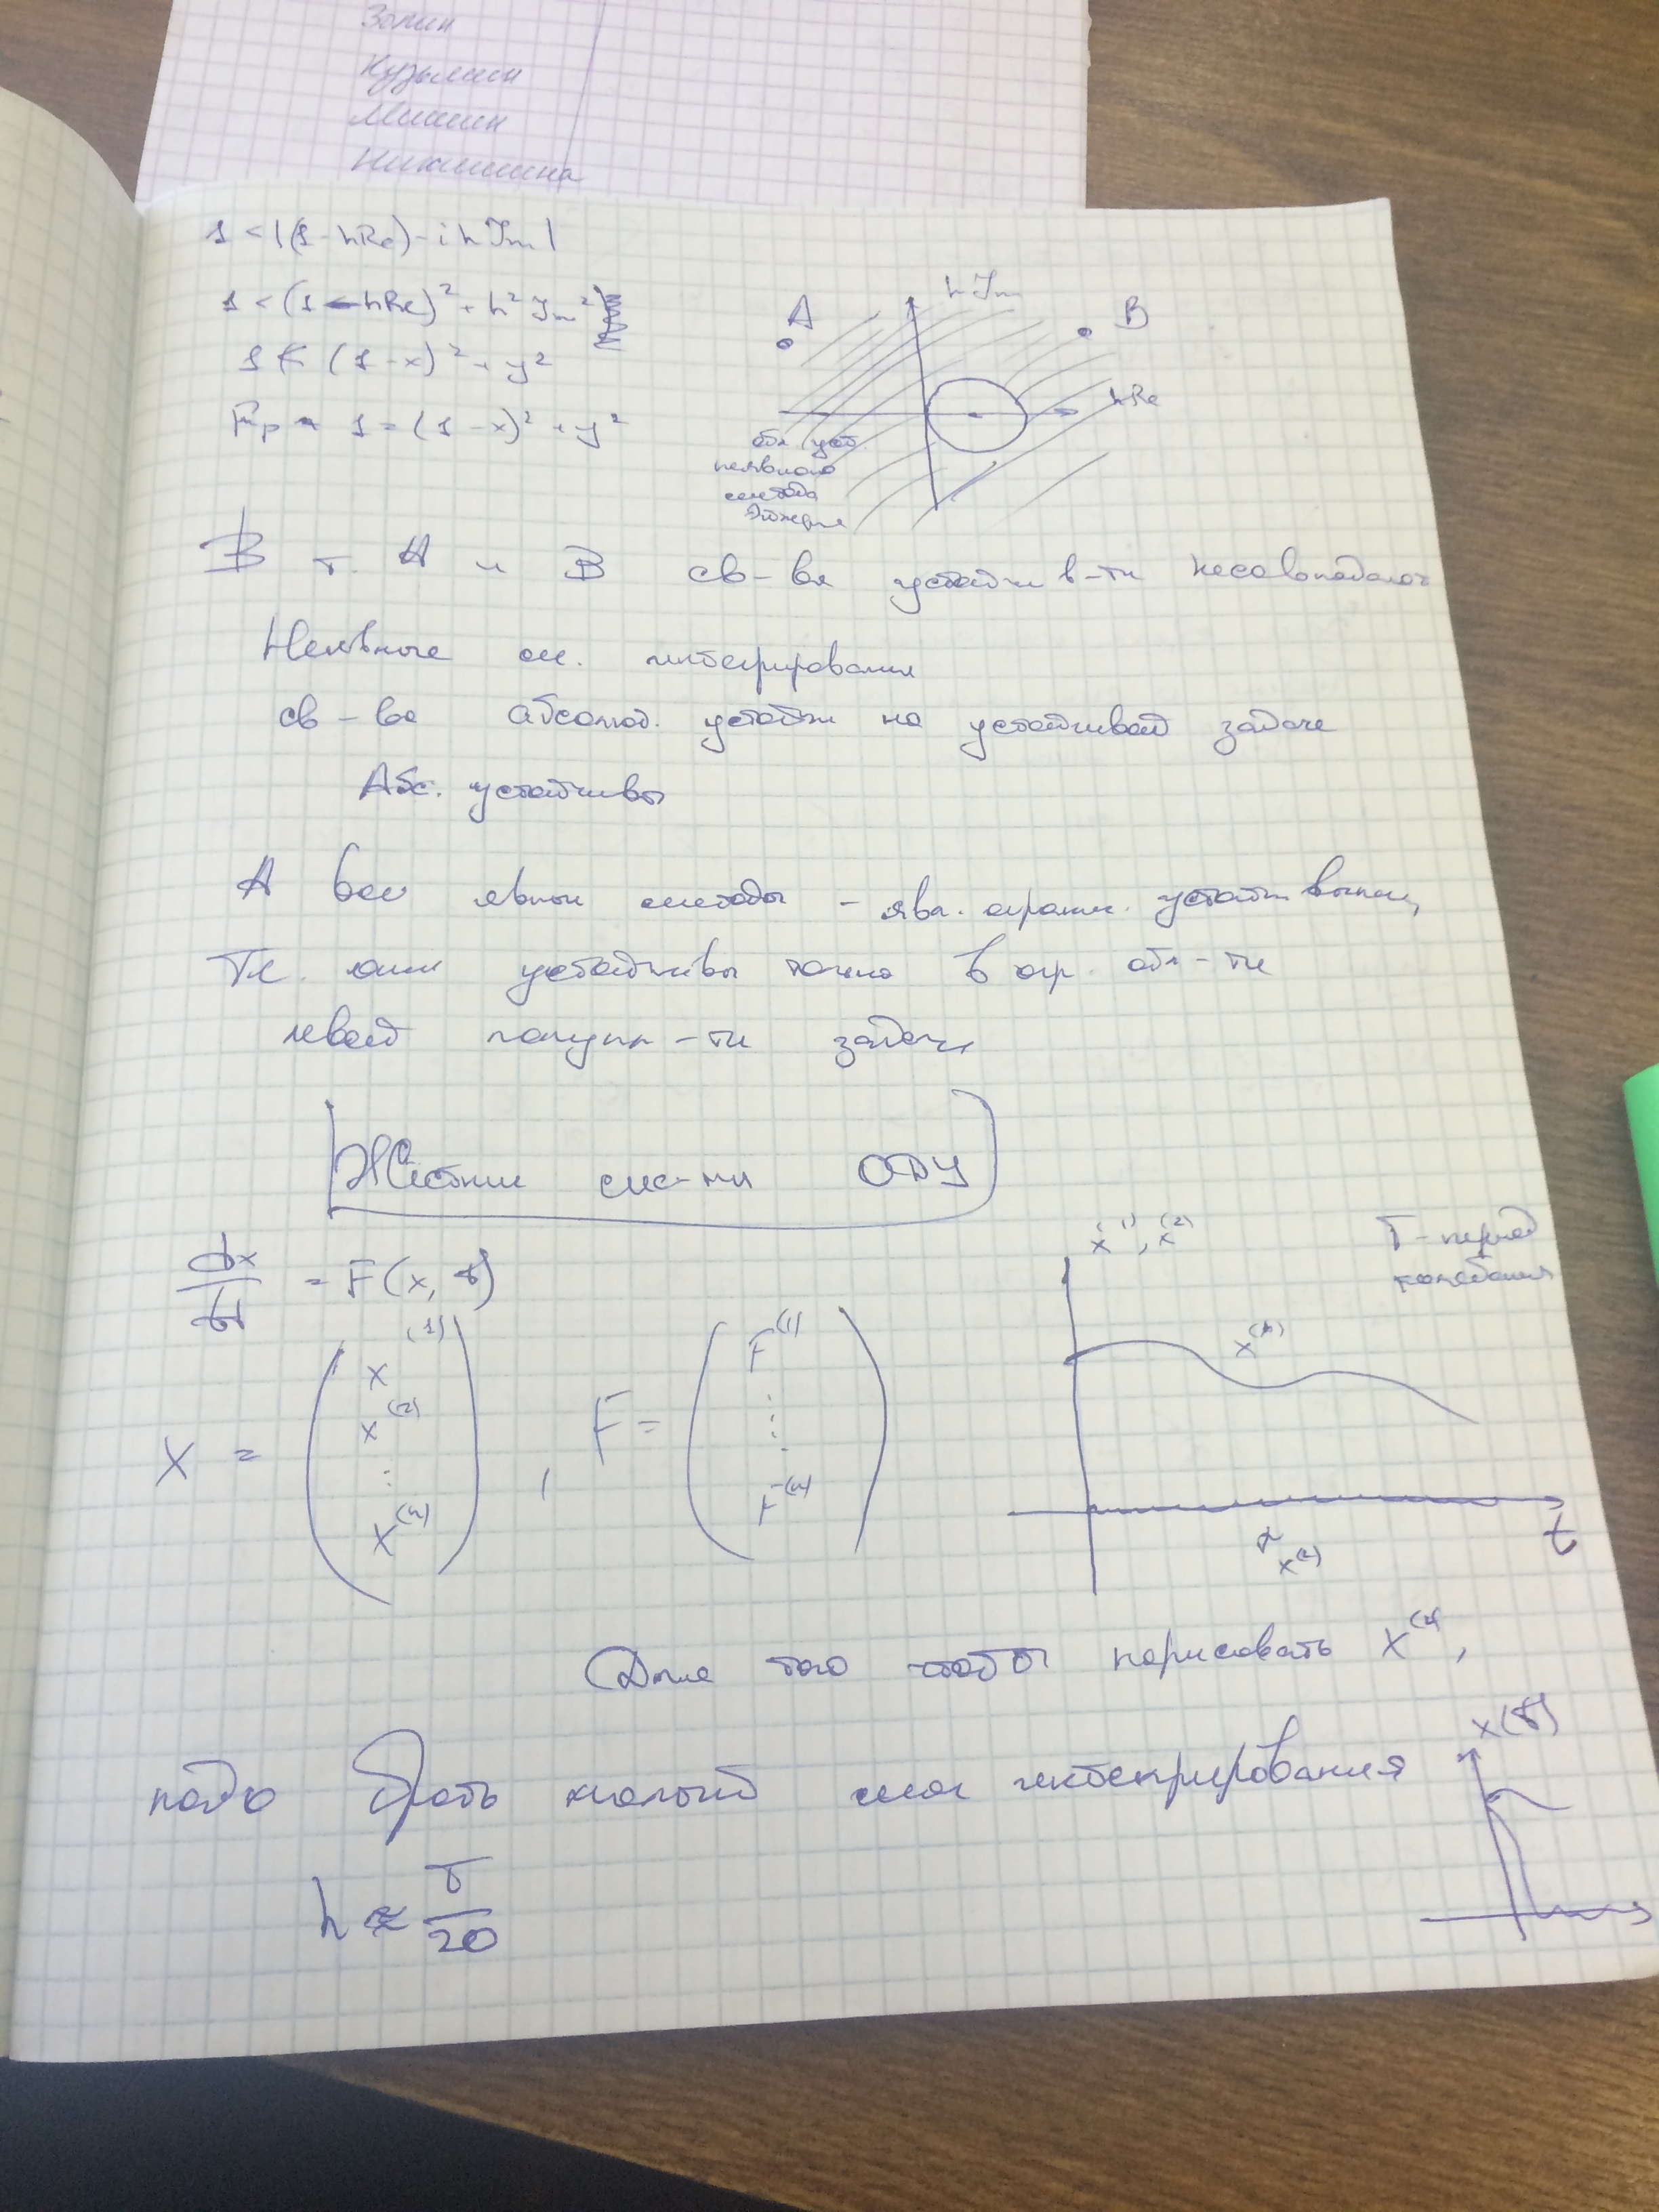 Зотин
Кузьмин
Мишин
Никишина
1 < |(1 - hRe) - i h Jm|
1 < (1 - hRe)² + h² Jm²
1 < (1 - x)² + y²
1 = (1 - x)² + y²
h Jm
A
B
hRe
обл уст
неявного
метода
Эйлера
В т. А и В св-ва устойчив-ти не совпадают
Неявные м. интегрирования
св-во абсолют. устойч на устойчивой задаче
Абс. устойчивы
А все явные методы - явл. огранич. устойч
Т.е. они устойчивы только в огр. обл-ти
левой полупл-ти задачи
Жёсткие сис-мы ОДУ
dx/dt = F(x, t)
X = (x⁽¹⁾ x⁽²⁾ ⋮ x⁽ⁿ⁾), F = (F⁽¹⁾ ⋮ F⁽ⁿ⁾)
x⁽¹⁾, x⁽²⁾
T - период
колебания
t
Для того чтобы нарисовать x⁽²⁾,
надо брать малый шаг интегрирования
x(t)
h ≈ T/20